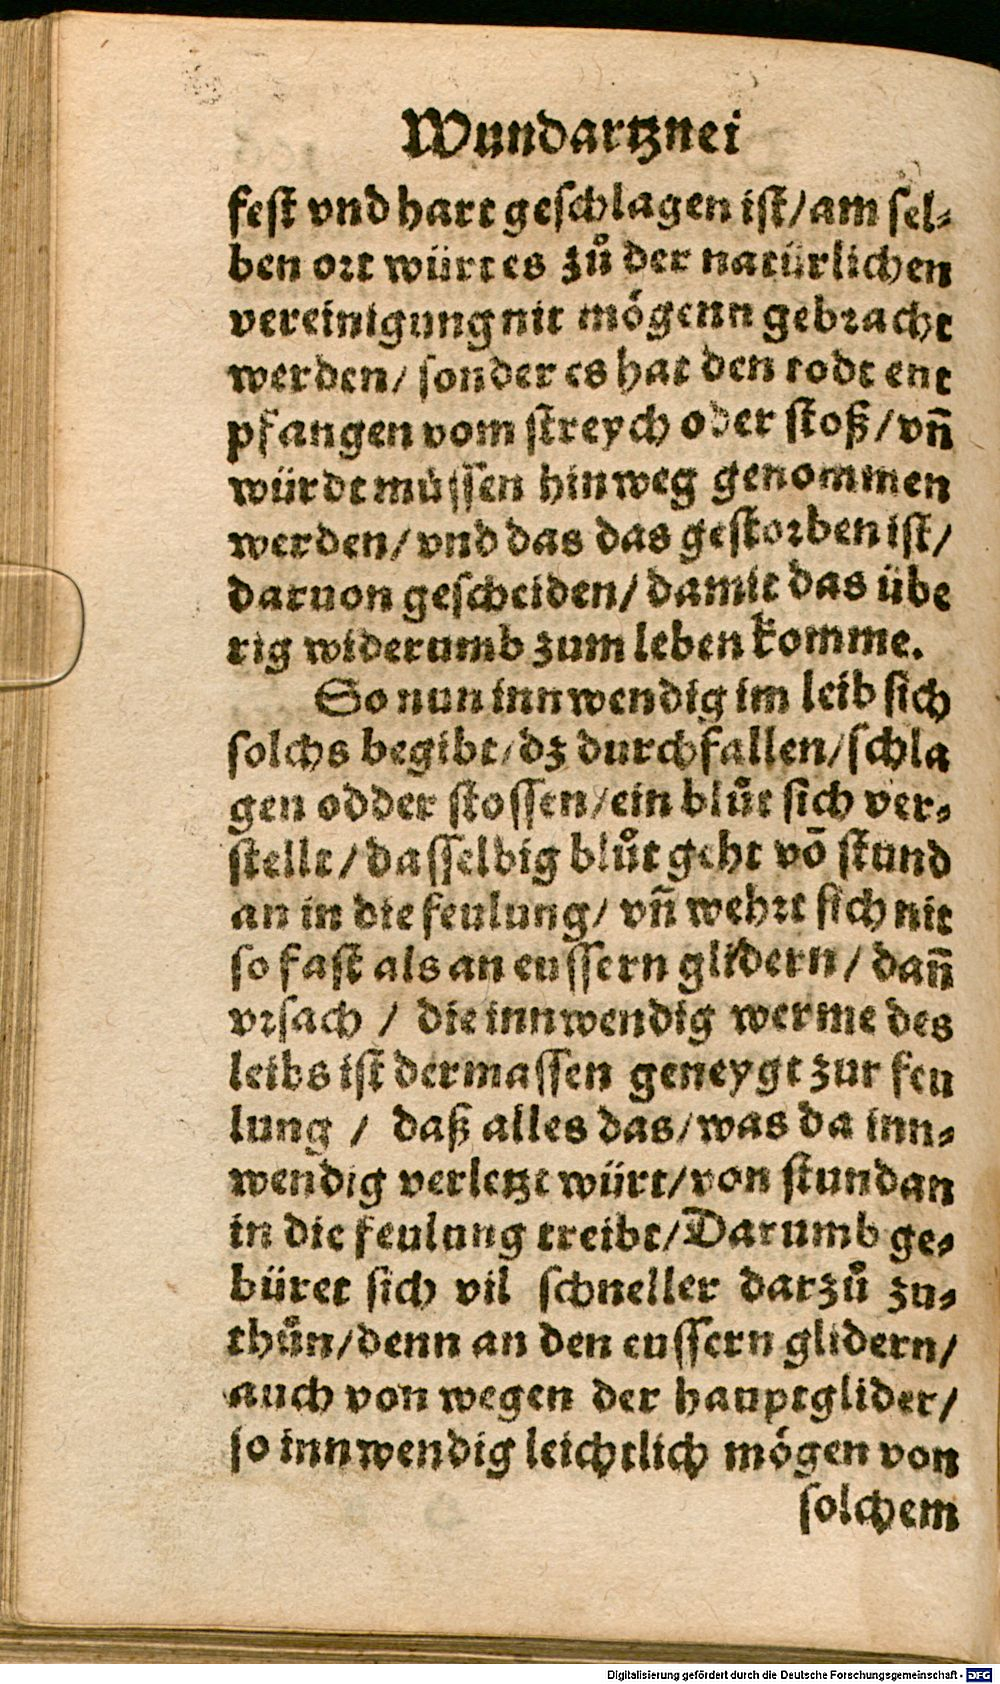 Wundartznei
fest vnd hart geschlagen ist/ am sel⸗
ben ort würt es zů der natürlichen
vereinigung nit mögenn gebracht
werden/ sonder es hat den todt ent
pfangen vom streych oder stoß/ vñ
würdt müssen hinweg genommen
werden/ vnd das das gestorben ist/
daruon gescheiden/ damit das übe
rig widerumb zum leben komme.
So nun innwendig im leib sich
solchs begibt/ dz durch fallen/ schla
gen odder stossen/ ein blůt sich ver⸗
stellt/ dasselbig blůt geht vō stund
an in die feulung/ vñ wehrt sich nit
so fast als an eussern glidern/ dañ
vrsach / die innwendig werme des
leibs ist dermassen geneygt zur feu
lung / daß alles das/ was da inn⸗
wendig verletzt würt/ von stundan
in die feulung treibt/ Darumb ge⸗
büret sich vil schneller darzů zu⸗
thůn/ denn an den eussern glidern/
auch von wegen der hauptglider/
so innwendig leichtlich mögen von
solchem
Digitalisierung gefördert durch die Deutsche Forschungsgemeinschaft - DFG